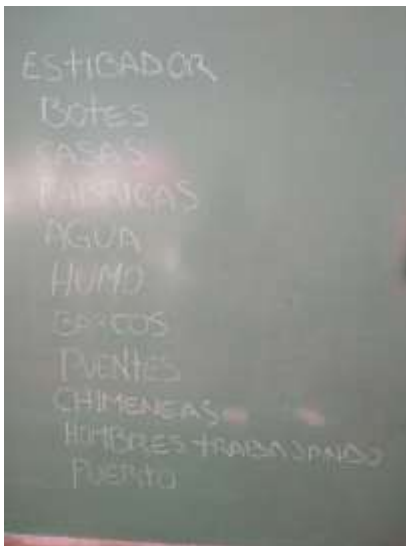 ESTIBADOR
BOTES
CASAS
FABRICAS
AGUA
HUMO
BARCOS
PUENTES
CHIMENEAS
HOMBRES TRABAJANDO
PUERTO